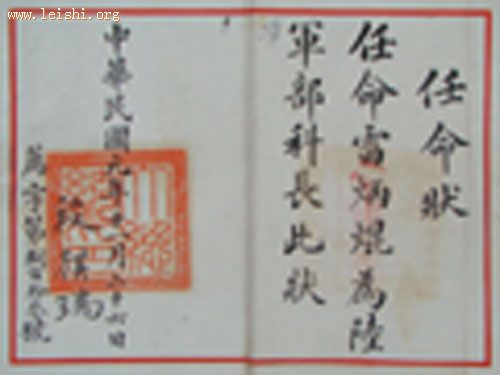 www.leishi.org
任命狀
任命雷炳焜為陸
軍部科長此狀
中華民國元年十二月 日
段祺瑞
字第 號